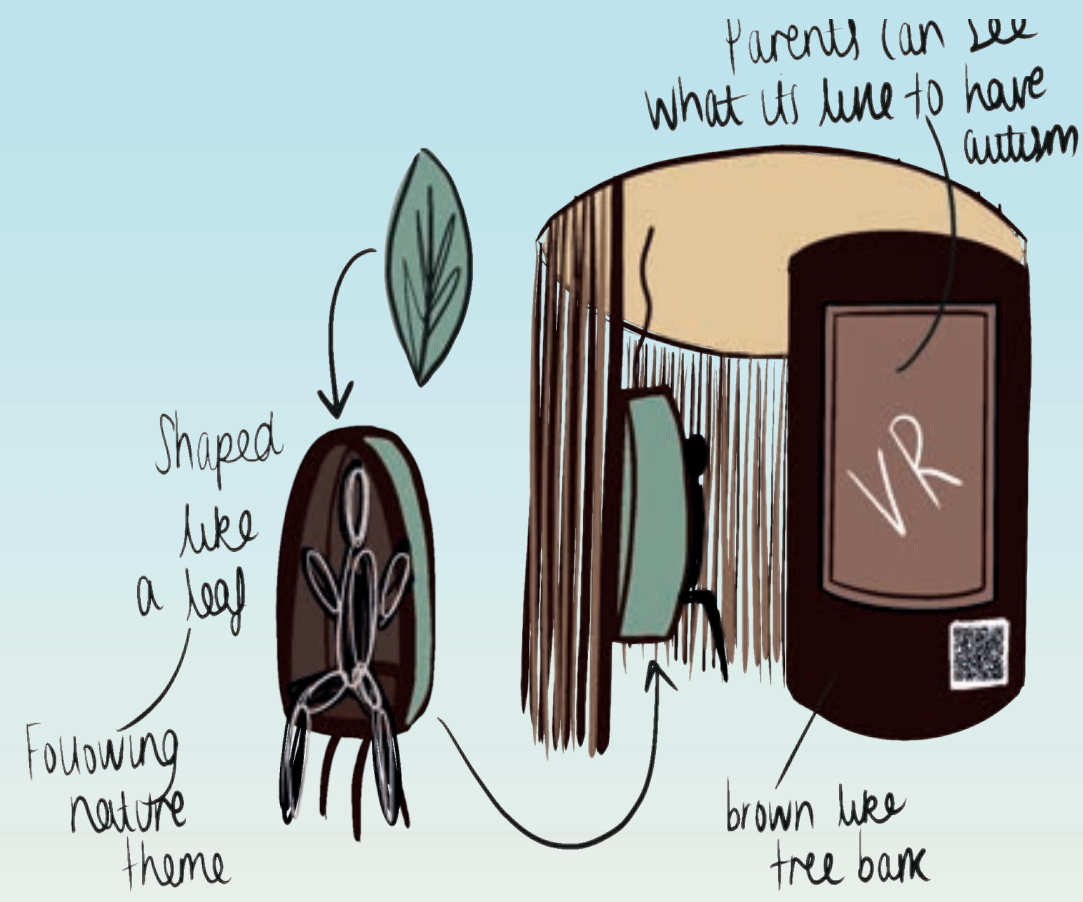 Parents can see
what its like to have
autism
Shaped
like
a leaf
Following
nature
theme
VR
brown like
tree bark